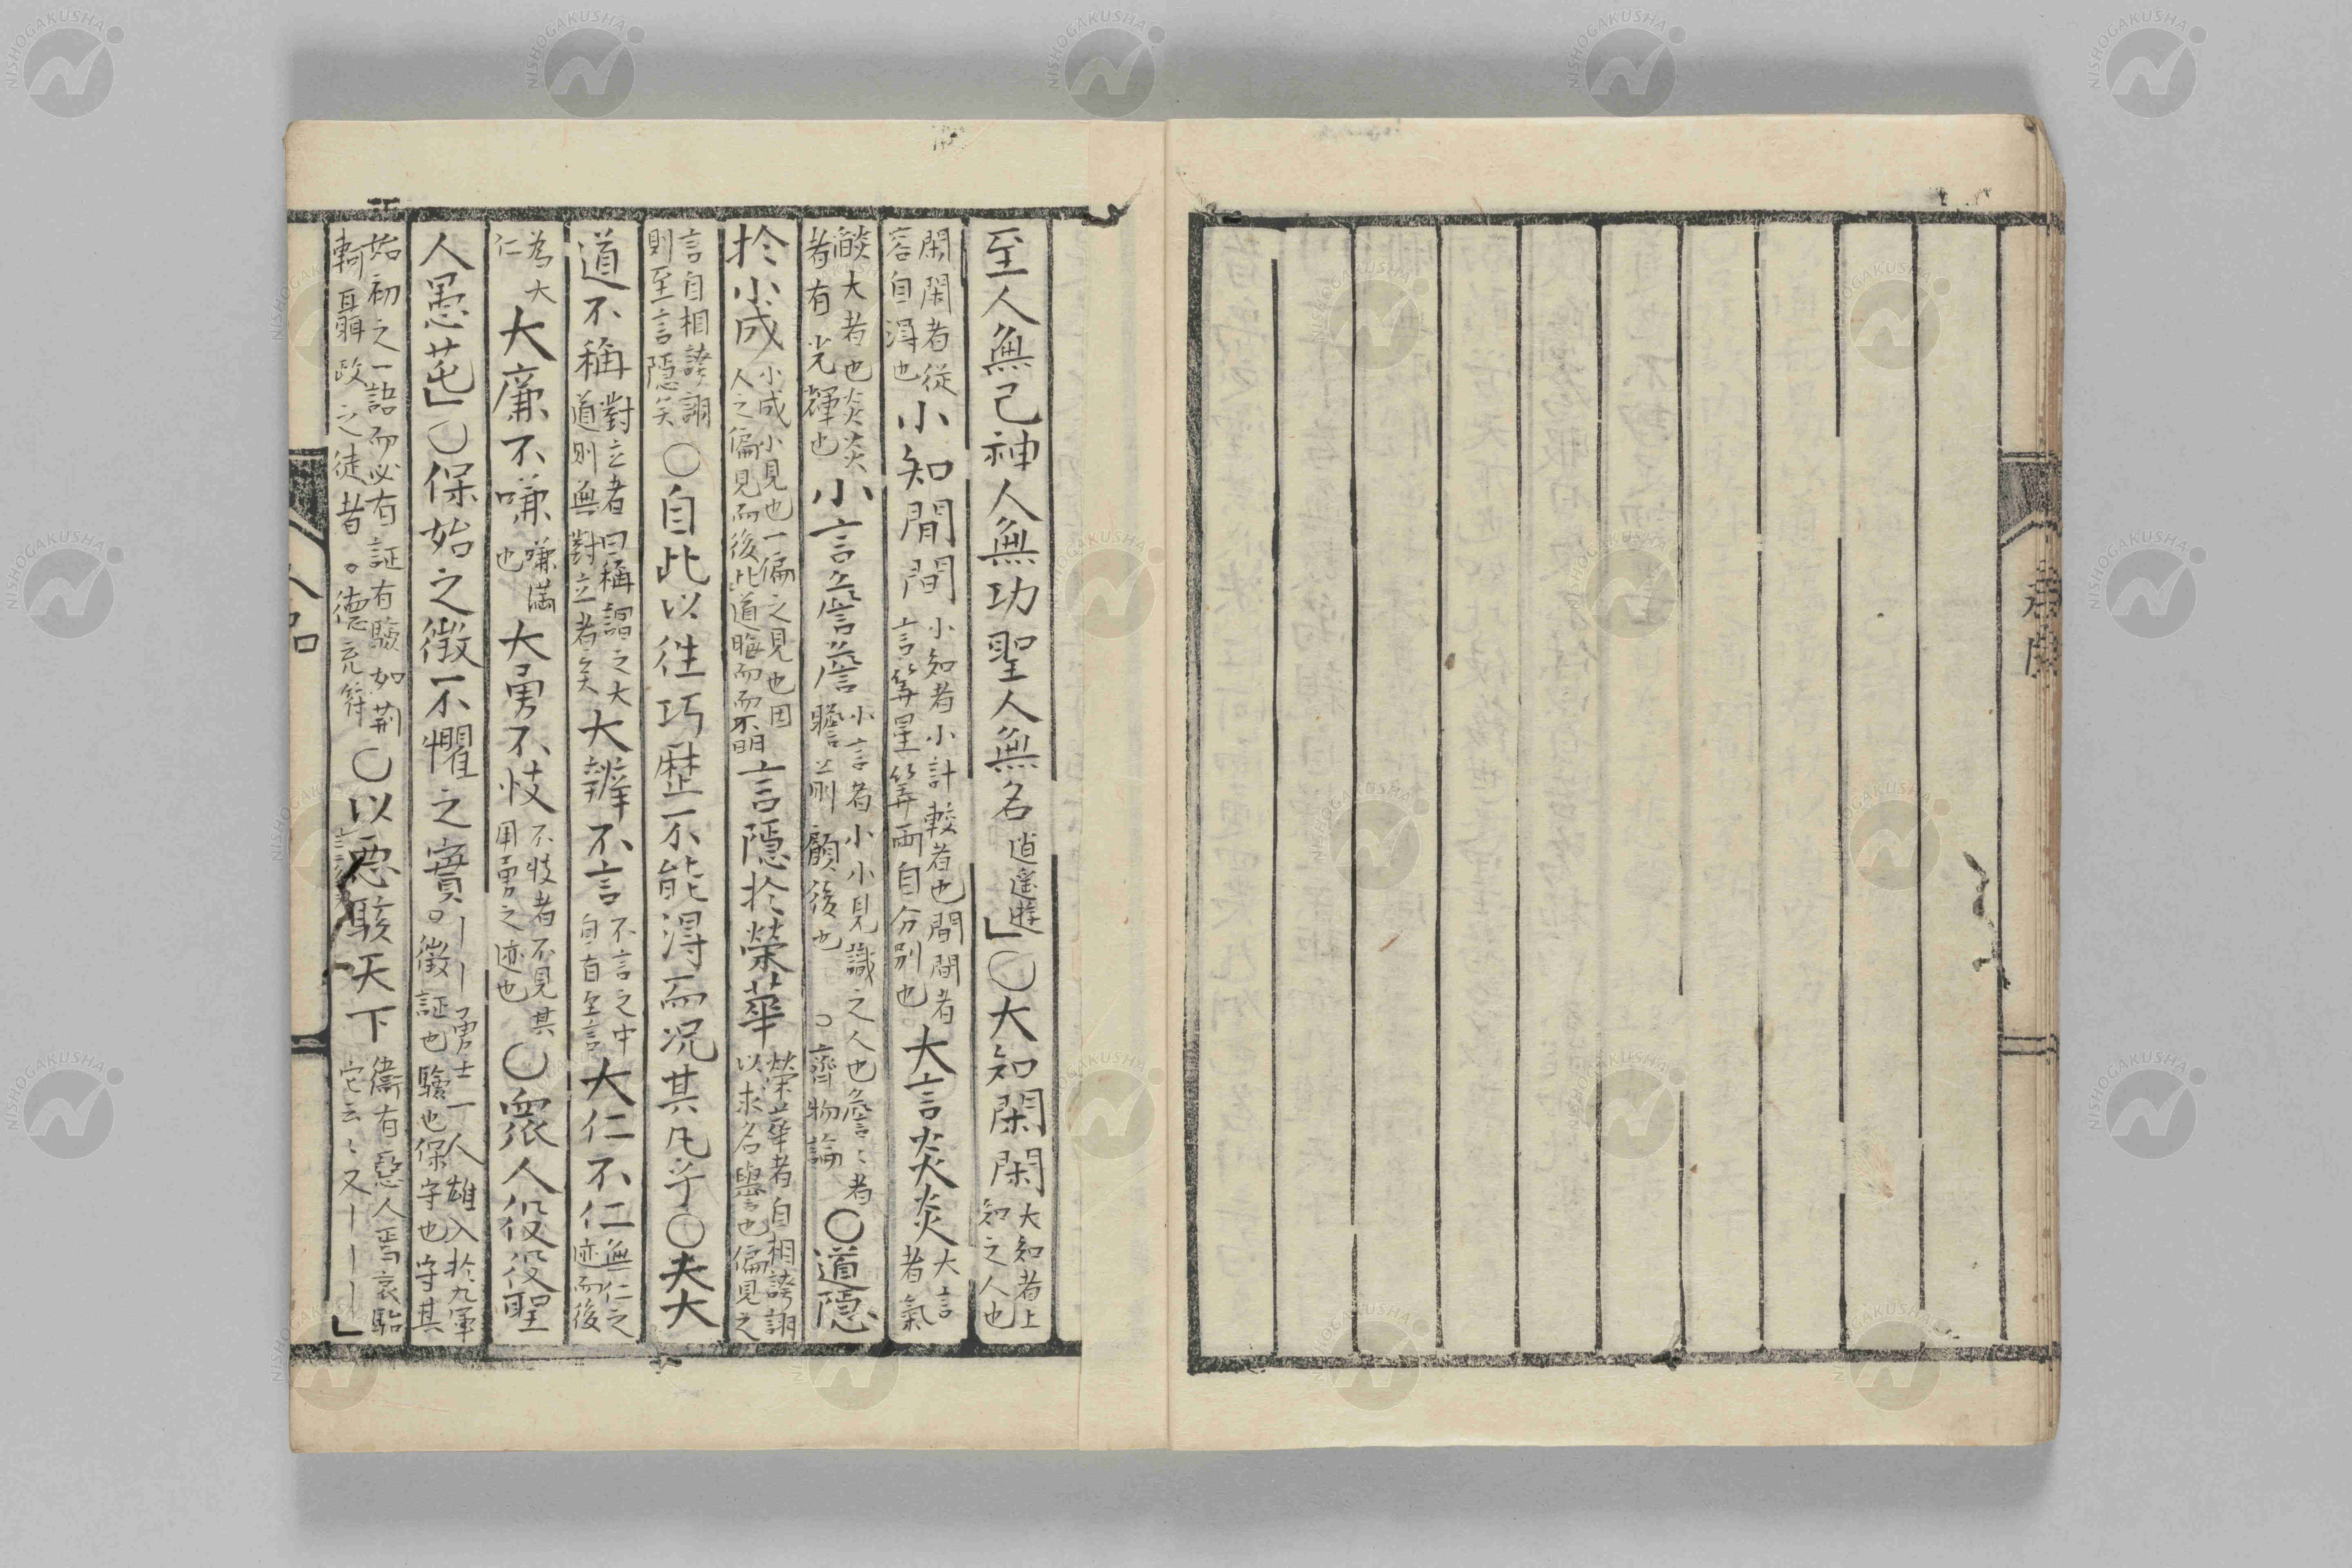 至人無己神人無功聖人無名逍遥遊」○大知閑閑大知者上知之人也
閑閑者従容自得也小知間間小知者小計較者也間間者言筭星筭両自分别也大言炎炎大言者氣
燄大者也炎炎者有光輝也小言詹詹小言者小小見識之人也詹詹〻者瞻前顧後也○齊物論○道隠
於小成小成小見也一偏之見也因人之偏見而後此道晦而不明言隠於榮華榮華者自相誇詡以求名譽也偏見之
言自相誇詡則至言隠矣○自此以往巧歴不能得而况其凡乎○夫大
道不稱對立者曰稱謂之大道則無對立者矣大辨不言不言之中自有至言大仁不仁無仁之迹而後
為大仁大廉不嗛嗛満也大勇不忮不忮者不見其用勇之迹也○衆人役役聖
人愚芚」○保始之徴不懼之實○｜｜勇士一人雄入於九軍徴証也驗也保守也守其
始初之一語而必有証有驗如荊軻聶政之徒者○德充符○以悪駭天下衛有惡人焉哀駘它云〻又｜｜｜」
人品
NISHOGAKUSHA